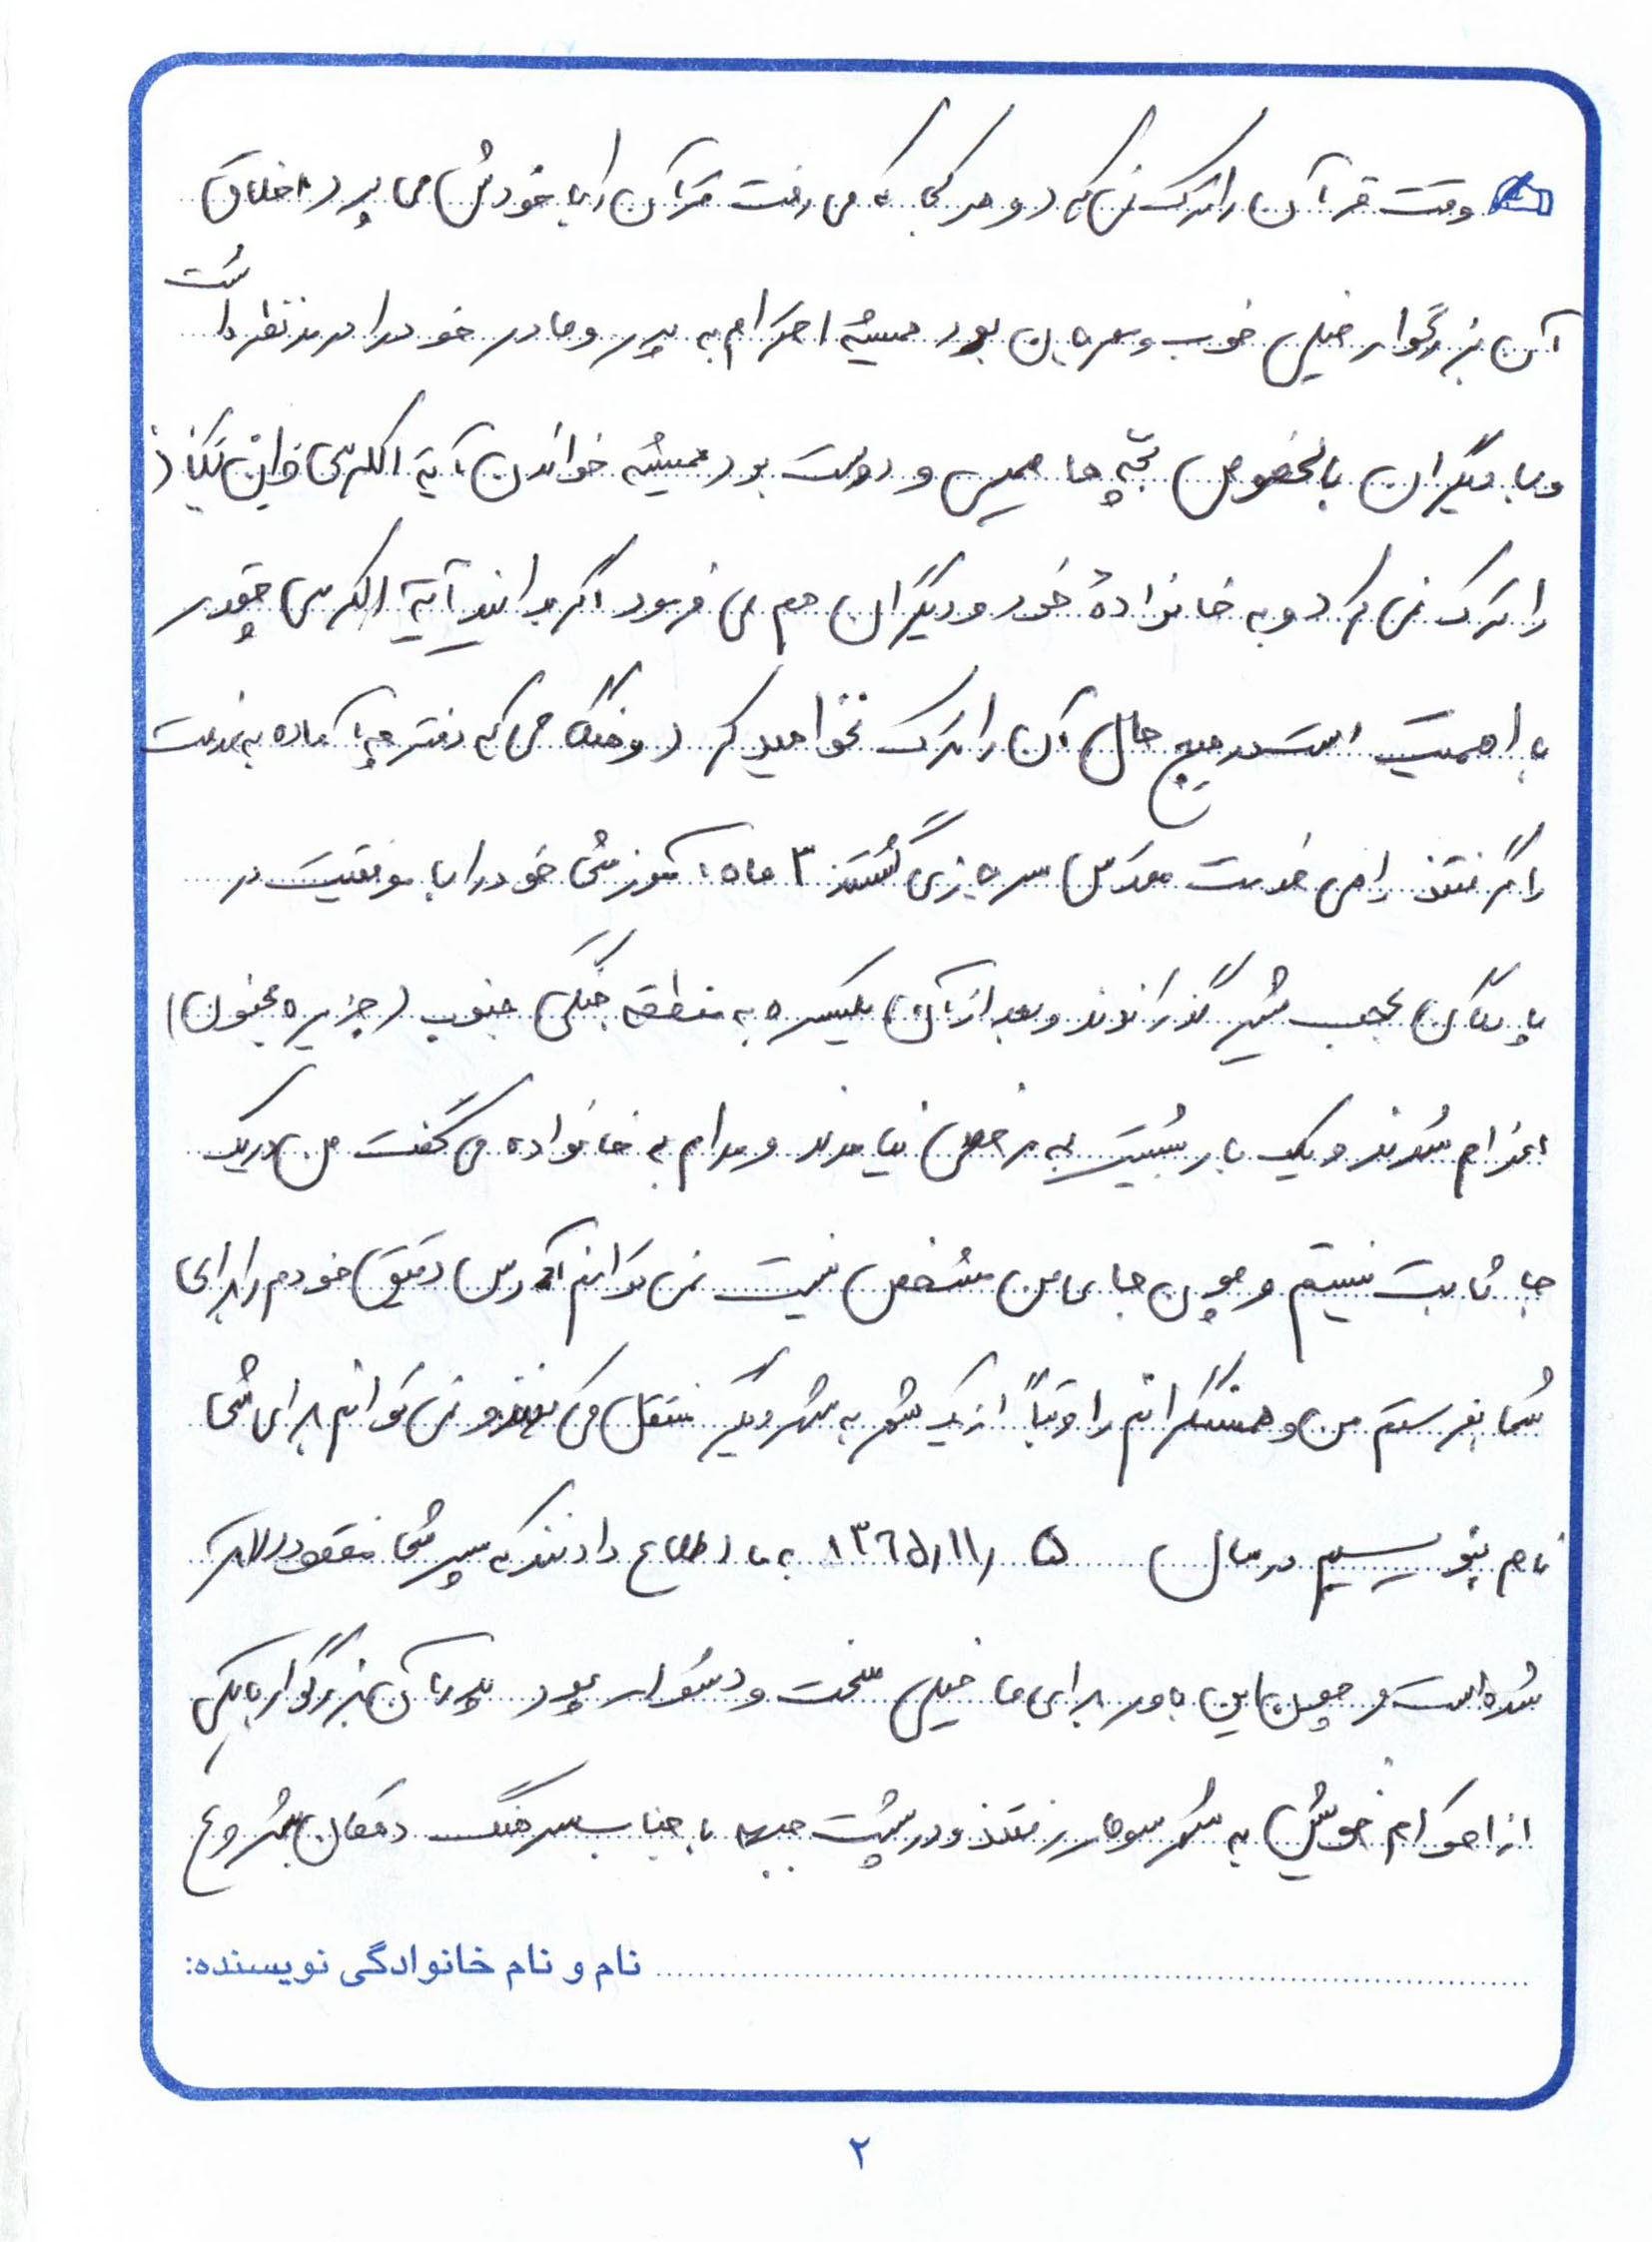 وقت قرآن را ترک نمی کرد و هر کجا که می رفت قرآن را با خودش می برد اخلاق
آن بزرگوار خیلی خوب و مهربان بود همیشه احترام به پدر و مادر خود را در مد نظر داشت
و با دیگران بالخصوص بچه ها صمیمی و دوست بود همیشه خواندن آیة الکرسی
را ترک نمی کرد و به خانوادهٔ خود و دیگران هم می فرمود اگر بدانید آیة الکرسی چقدر
با اهمیت است در هیچ حال آن را ترک نخواهید کرد و هنگامی که دفترچه آماده به خدمت
را گرفتند راهی خدمت مقدس سربازی گشتند ۳ ماه آموزشی خود را با موفقیت در
پادگان عجب شیر گذراندند و بعد از آن یکسره به منطقه جنگی جنوب (جزیره مجنون)
اعزام شدند و یک بار بیشتر به مرخصی نیامدند و مدام به خانواده می گفت من در یک
جا ثابت نیستم و چون جای من مشخص نیست نمی توانم آدرس دقیق خودم را برای
شما بفرستم من و همسنگرانم را دقیقاً از یک شهر به شهر دیگر منتقل می کنند و نمی توانم برای شما
نامه بنویسم در سال ۱۳۶۵/۱۱/۵ به ما اطلاع دادند که پسر شما مفقودالاثر
شده است و چون این باور برای ما خیلی سخت و دشوار بود پدر آن بزرگوار با یکی
از اقوام خویش به شهر سومار رفتند و در پشت جبهه با جناب سرهنگ دهقان شروع
نام و نام خانوادگی نویسنده:
۲